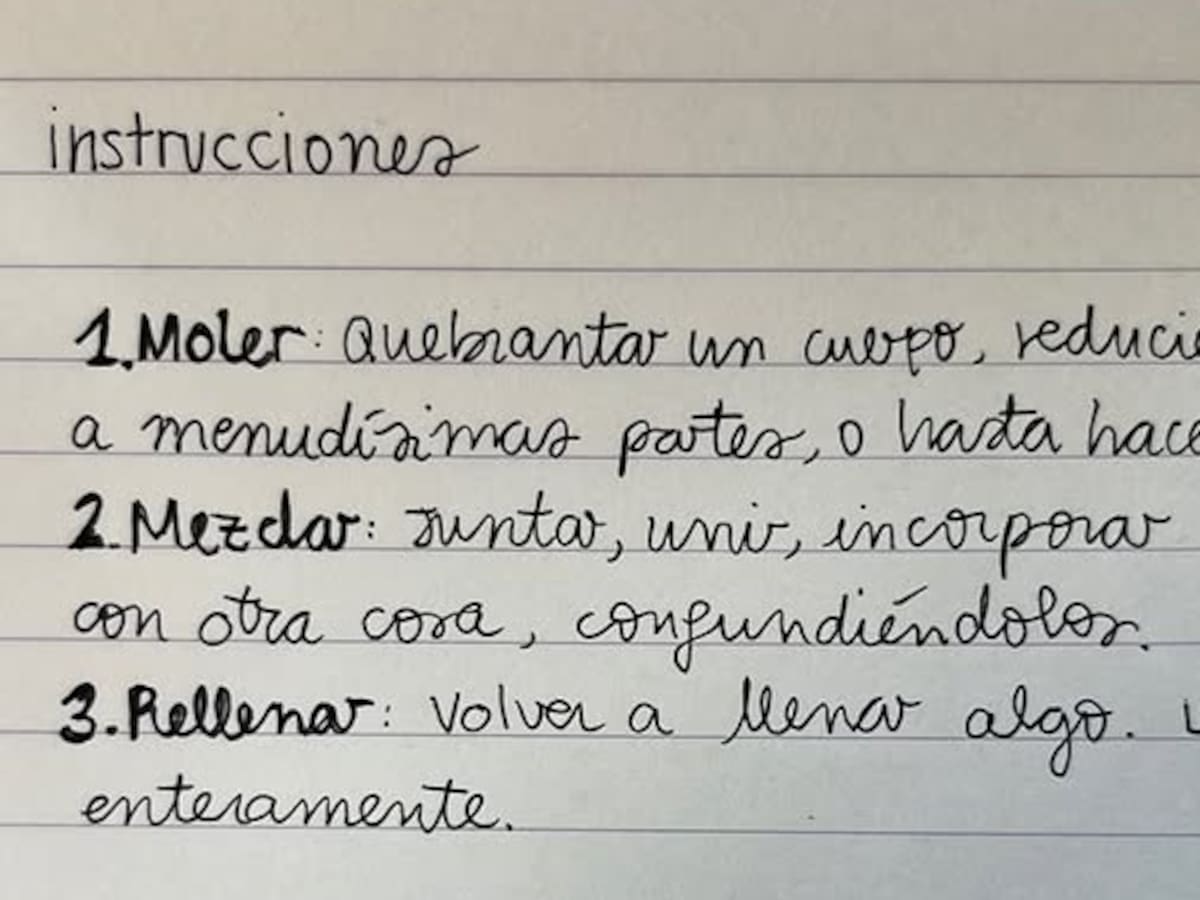 instrucciones
1. Moler: Quebrantar un cuerpo, reducié
a menudísimas partes, o hasta hace
2. Mezclar: Juntar, unir, incorporar
con otra cosa, confundiéndolos.
3. Rellenar: Volver a llenar algo. L
enteramente.